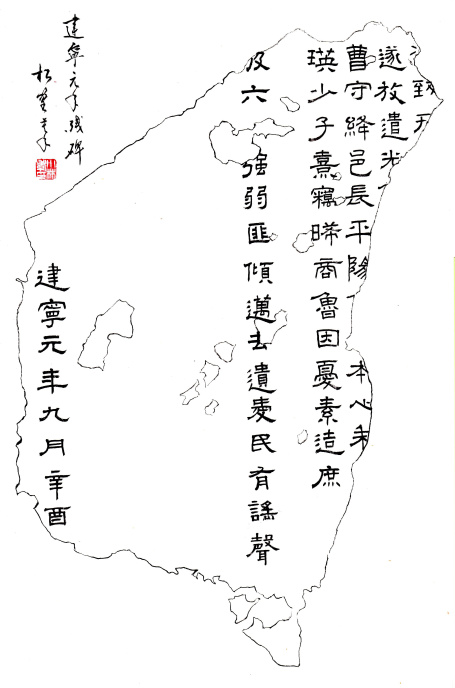 致
遂放遣
曹守絳邑長平陽 本心
瑛少子熹竊晞商魯因憂素造庶
六 強弱匪傾邁去遺愛民有謠聲
建寧元年九月辛酉
建寧元年残碑